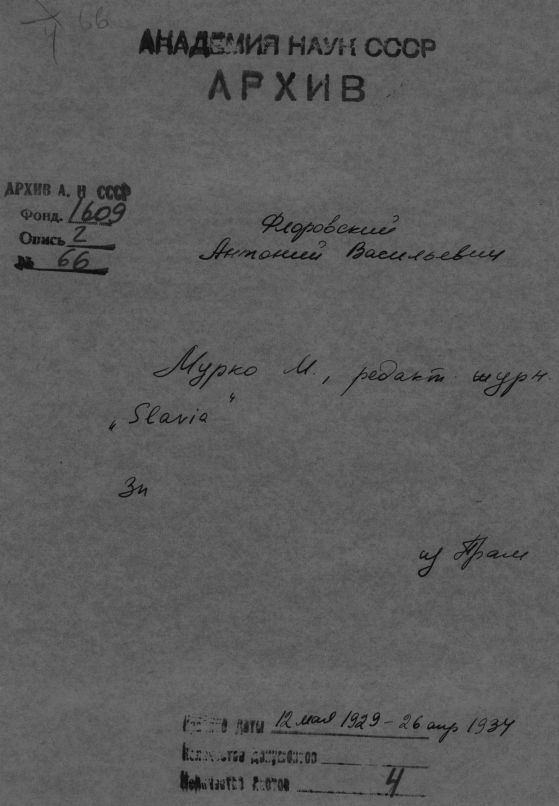 4 66
АКАДЕМИЯ НАУК СССР
АРХИВ
АРХИВ А. Н СССР
Фонд. 1609
Опись 2
№ 66
Флоровский
Антоний Васильевич
Мурко М., редакт. журн.
„Slavia"
3п
из Праги
Крайние даты 12 мая 1929 – 26 апр 1934
Количество документов
Количество листов 4